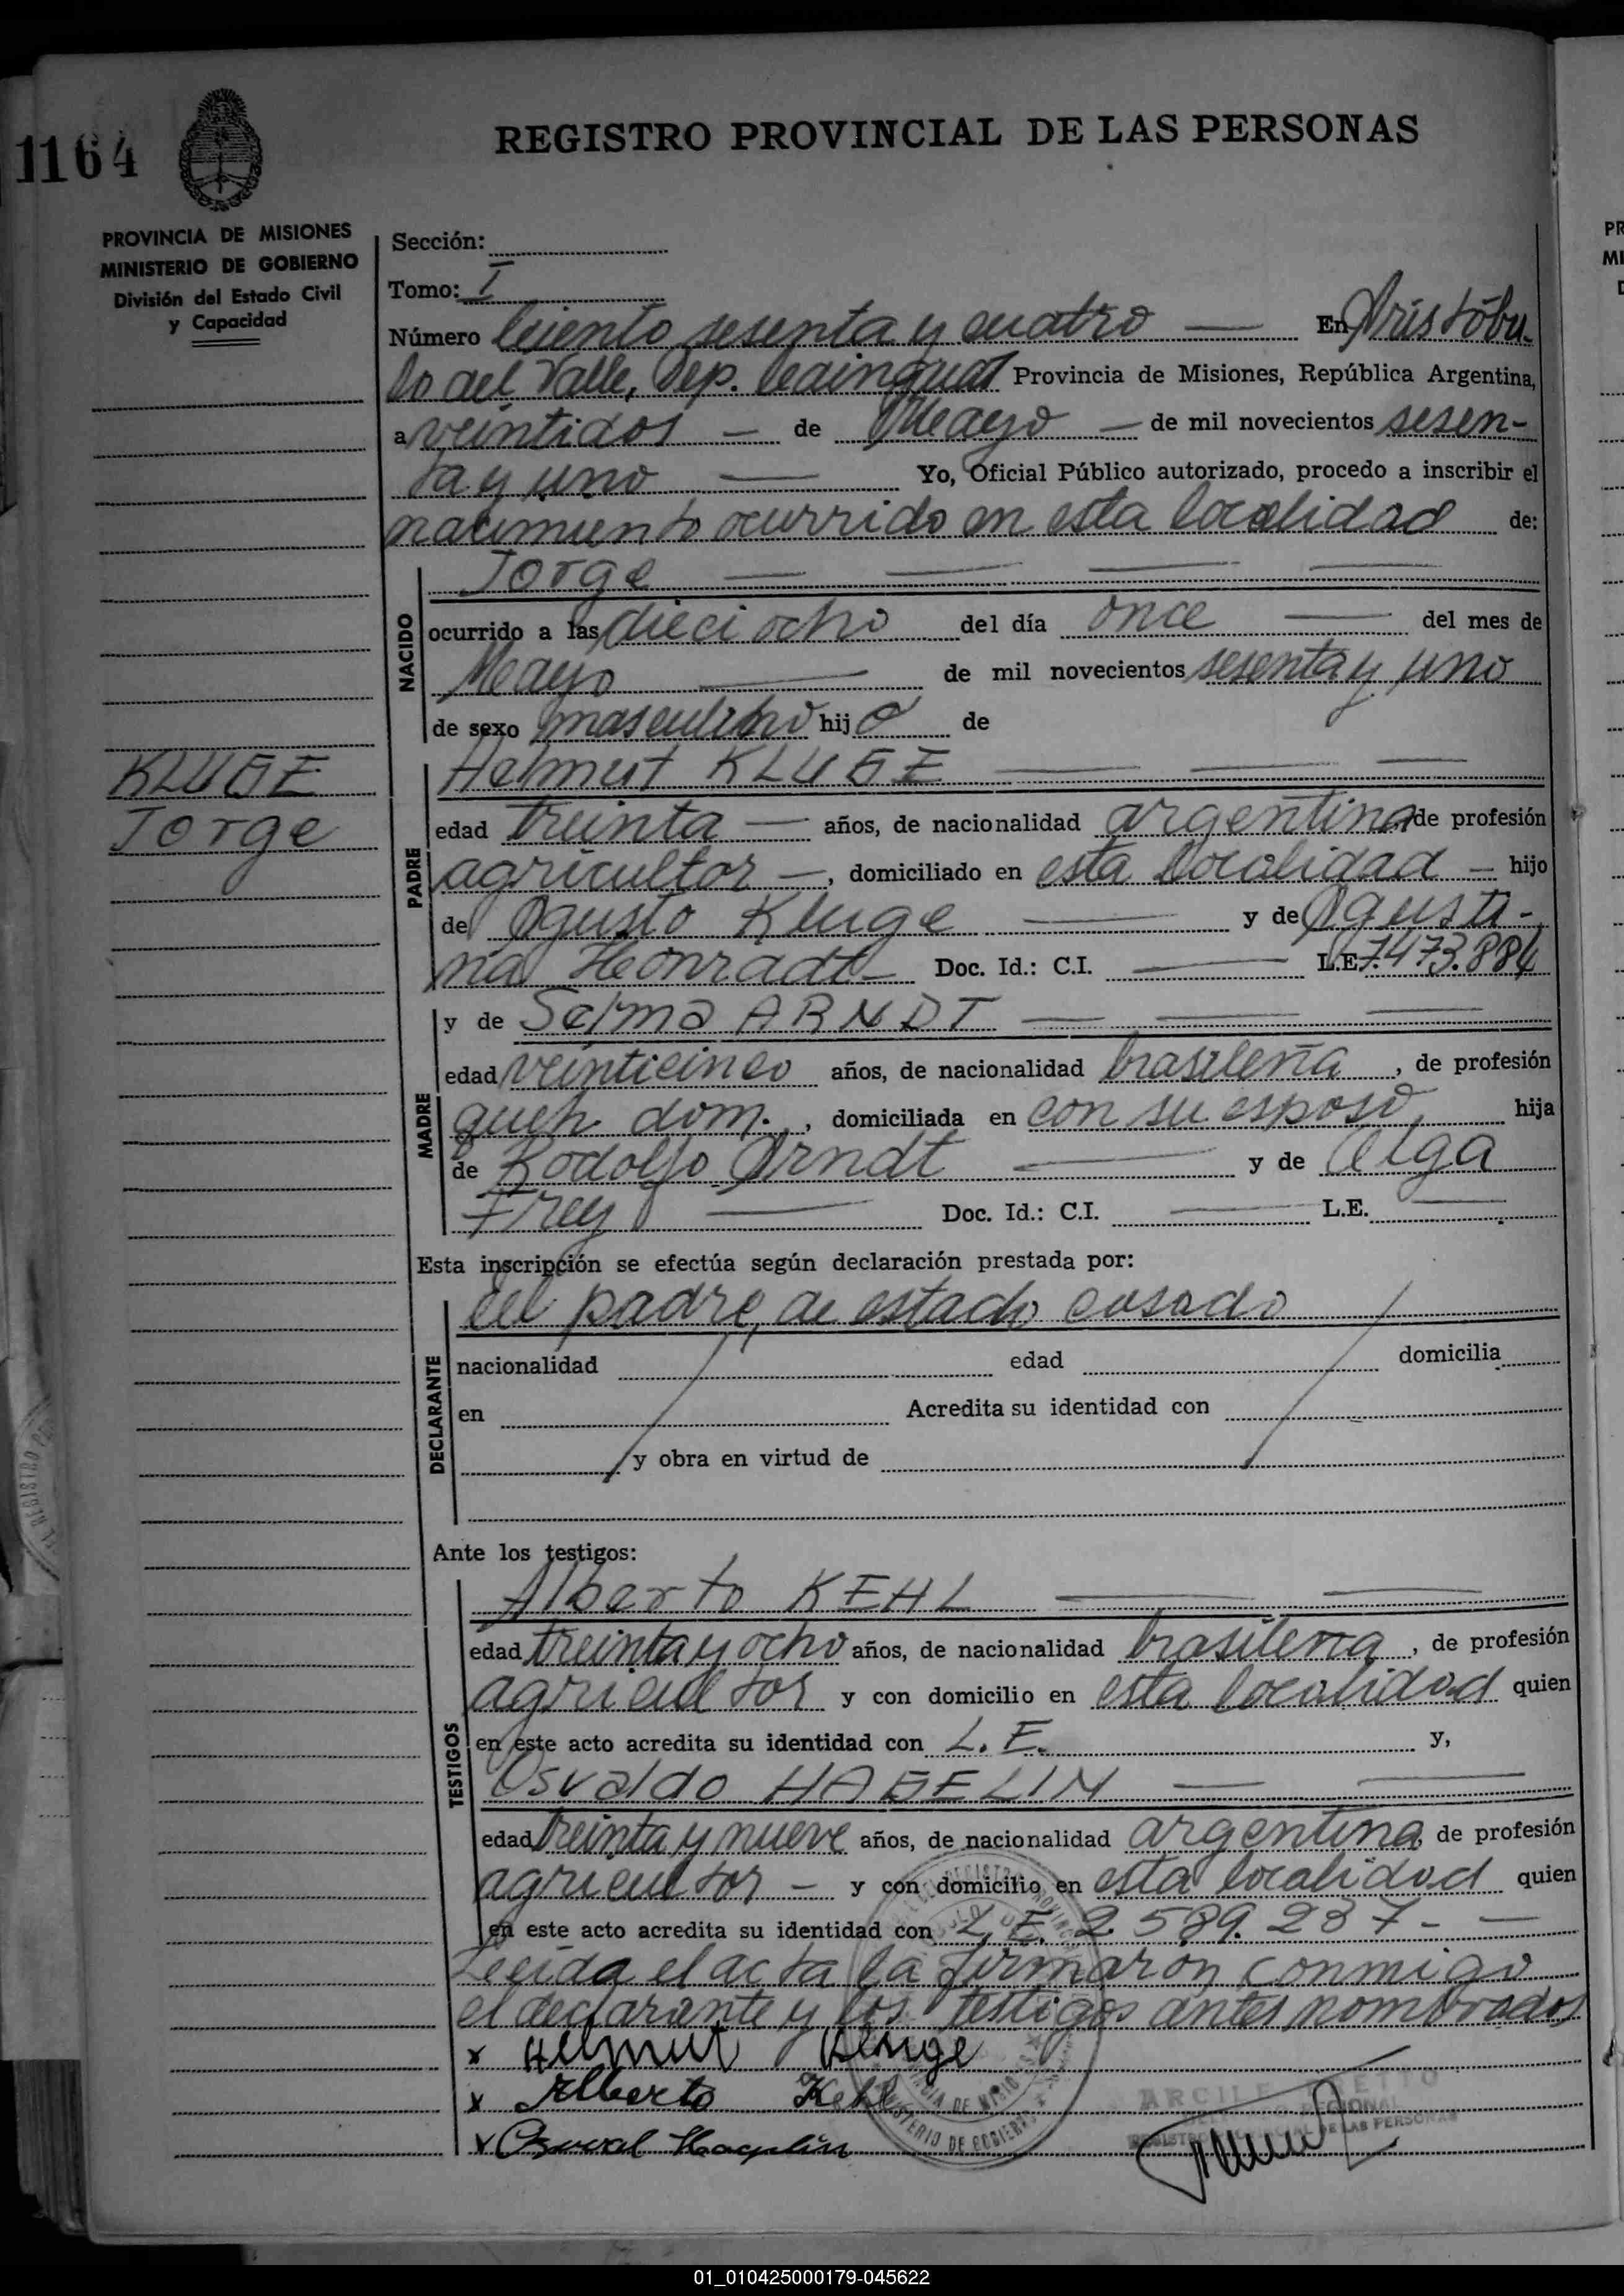 1164
REGISTRO PROVINCIAL DE LAS PERSONAS
PROVINCIA DE MISIONES
MINISTERIO DE GOBIERNO
División del Estado Civil
y Capacidad
Sección:
Tomo: I
Número Ciento sesenta y cuatro — En Aristóbu-
lo del Valle, Dep. Cainguas Provincia de Misiones, República Argentina,
a veintidos — de Mayo — de mil novecientos sesen-
ta y uno — Yo, Oficial Público autorizado, procedo a inscribir el
nacimiento ocurrido en esta localidad de:
NACIDO
Jorge — — — —
ocurrido a las dieciocho del día once — del mes de
Mayo — de mil novecientos sesenta y uno
de sexo masculino hijo de
KLUGE
Jorge
PADRE
Helmut KLUGE — — —
edad treinta — años, de nacionalidad argentina de profesión
agricultor —, domiciliado en esta localidad — hijo
de Agusto Kluge — y de Agusti-
na Honradt — Doc. Id.: C.I. — L.E. 7.473.884
MADRE
y de Selma ARNDT — — —
edad veinticinco años, de nacionalidad brasileña, de profesión
queh. dom., domiciliada en con su esposo, hija
de Rodolfo Arndt — y de Olga
Frey — Doc. Id.: C.I. — L.E. —
Esta inscripción se efectúa según declaración prestada por:
DECLARANTE
El padre, de estado casado
nacionalidad edad domicilia
en Acredita su identidad con
y obra en virtud de
Ante los testigos:
TESTIGOS
Alberto KEHL — —
edad treinta y ocho años, de nacionalidad brasileña, de profesión
agricultor y con domicilio en esta localidad quien
en este acto acredita su identidad con L.E. y,
Osvaldo HAGELIN — —
edad treinta y nueve años, de nacionalidad argentina, de profesión
agricultor — y con domicilio en esta localidad quien
en este acto acredita su identidad con L.E. 2.589.237 - —
Leida el acta la firmaron conmigo
el declarante y los testigos antes nombrados
x Helmut Kluge
x Alberto Kehl
x Osval Hagelin
REGISTRO PROVINCIAL DE LAS PERSONAS
MINISTERIO DE GOBIERNO
01_010425000179-045622